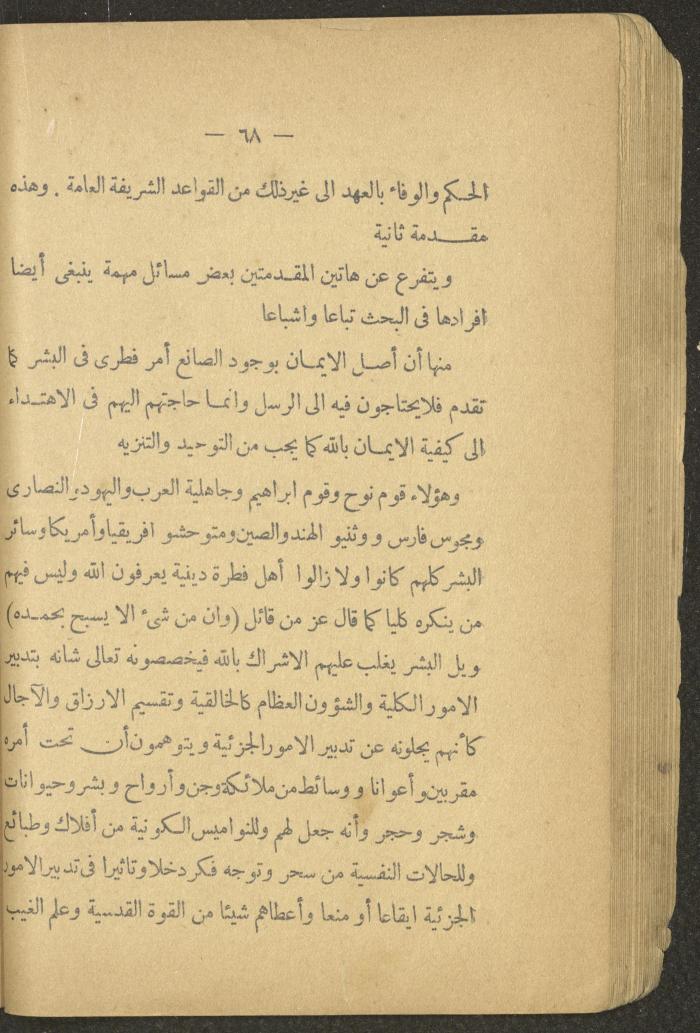 — ٦٨ —
الحكم والوفاء بالعهد الى غيرذلك من القواعد الشريفة العامة . وهذه
مقدمة ثانية
ويتفرع عن هاتين المقدمتين بعض مسائل مهمة ينبغى أيضا
افرادها فى البحث تباعا واشباعا
منها أن أصل الايمان بوجود الصانع أمر فطرى فى البشر كما
تقدم فلايحتاجون فيه الى الرسل وانما حاجتهم اليهم فى الاهتداء
الى كيفية الايمان بالله كما يجب من التوحيد والتنزيه
وهؤلاء قوم نوح وقوم ابراهيم وجاهلية العرب واليهود والنصارى
ومجوس فارس ووثنيو الهند والصين ومتوحشو افريقيا وأمريكا وسائر
البشر كلهم كانوا ولا زالوا أهل فطرة دينية يعرفون الله وليس فيهم
من ينكره كليا كما قال عز من قائل (وان من شىء الا يسبح بحمده)
وبل البشر يغلب عليهم الاشراك بالله فيخصصونه تعالى شانه بتدبير
الامور الكلية والشؤون العظام كالخالقية وتقسيم الارزاق والآجال
كأنهم يجلونه عن تدبير الامور الجزئية ويتوهمون أن تحت أمره
مقربين وأعوانا ووسائط من ملائكة وجن وأرواح وبشر وحيوانات
وشجر وحجر وأنه جعل لهم وللنواميس الكونية من أفلاك وطبائع
وللحالات النفسية من سحر وتوجه فكر دخلا وتاثيرا فى تدبير الامور
الجزئية ايقاعا أو منعا وأعطاهم شيئا من القوة القدسية وعلم الغيب